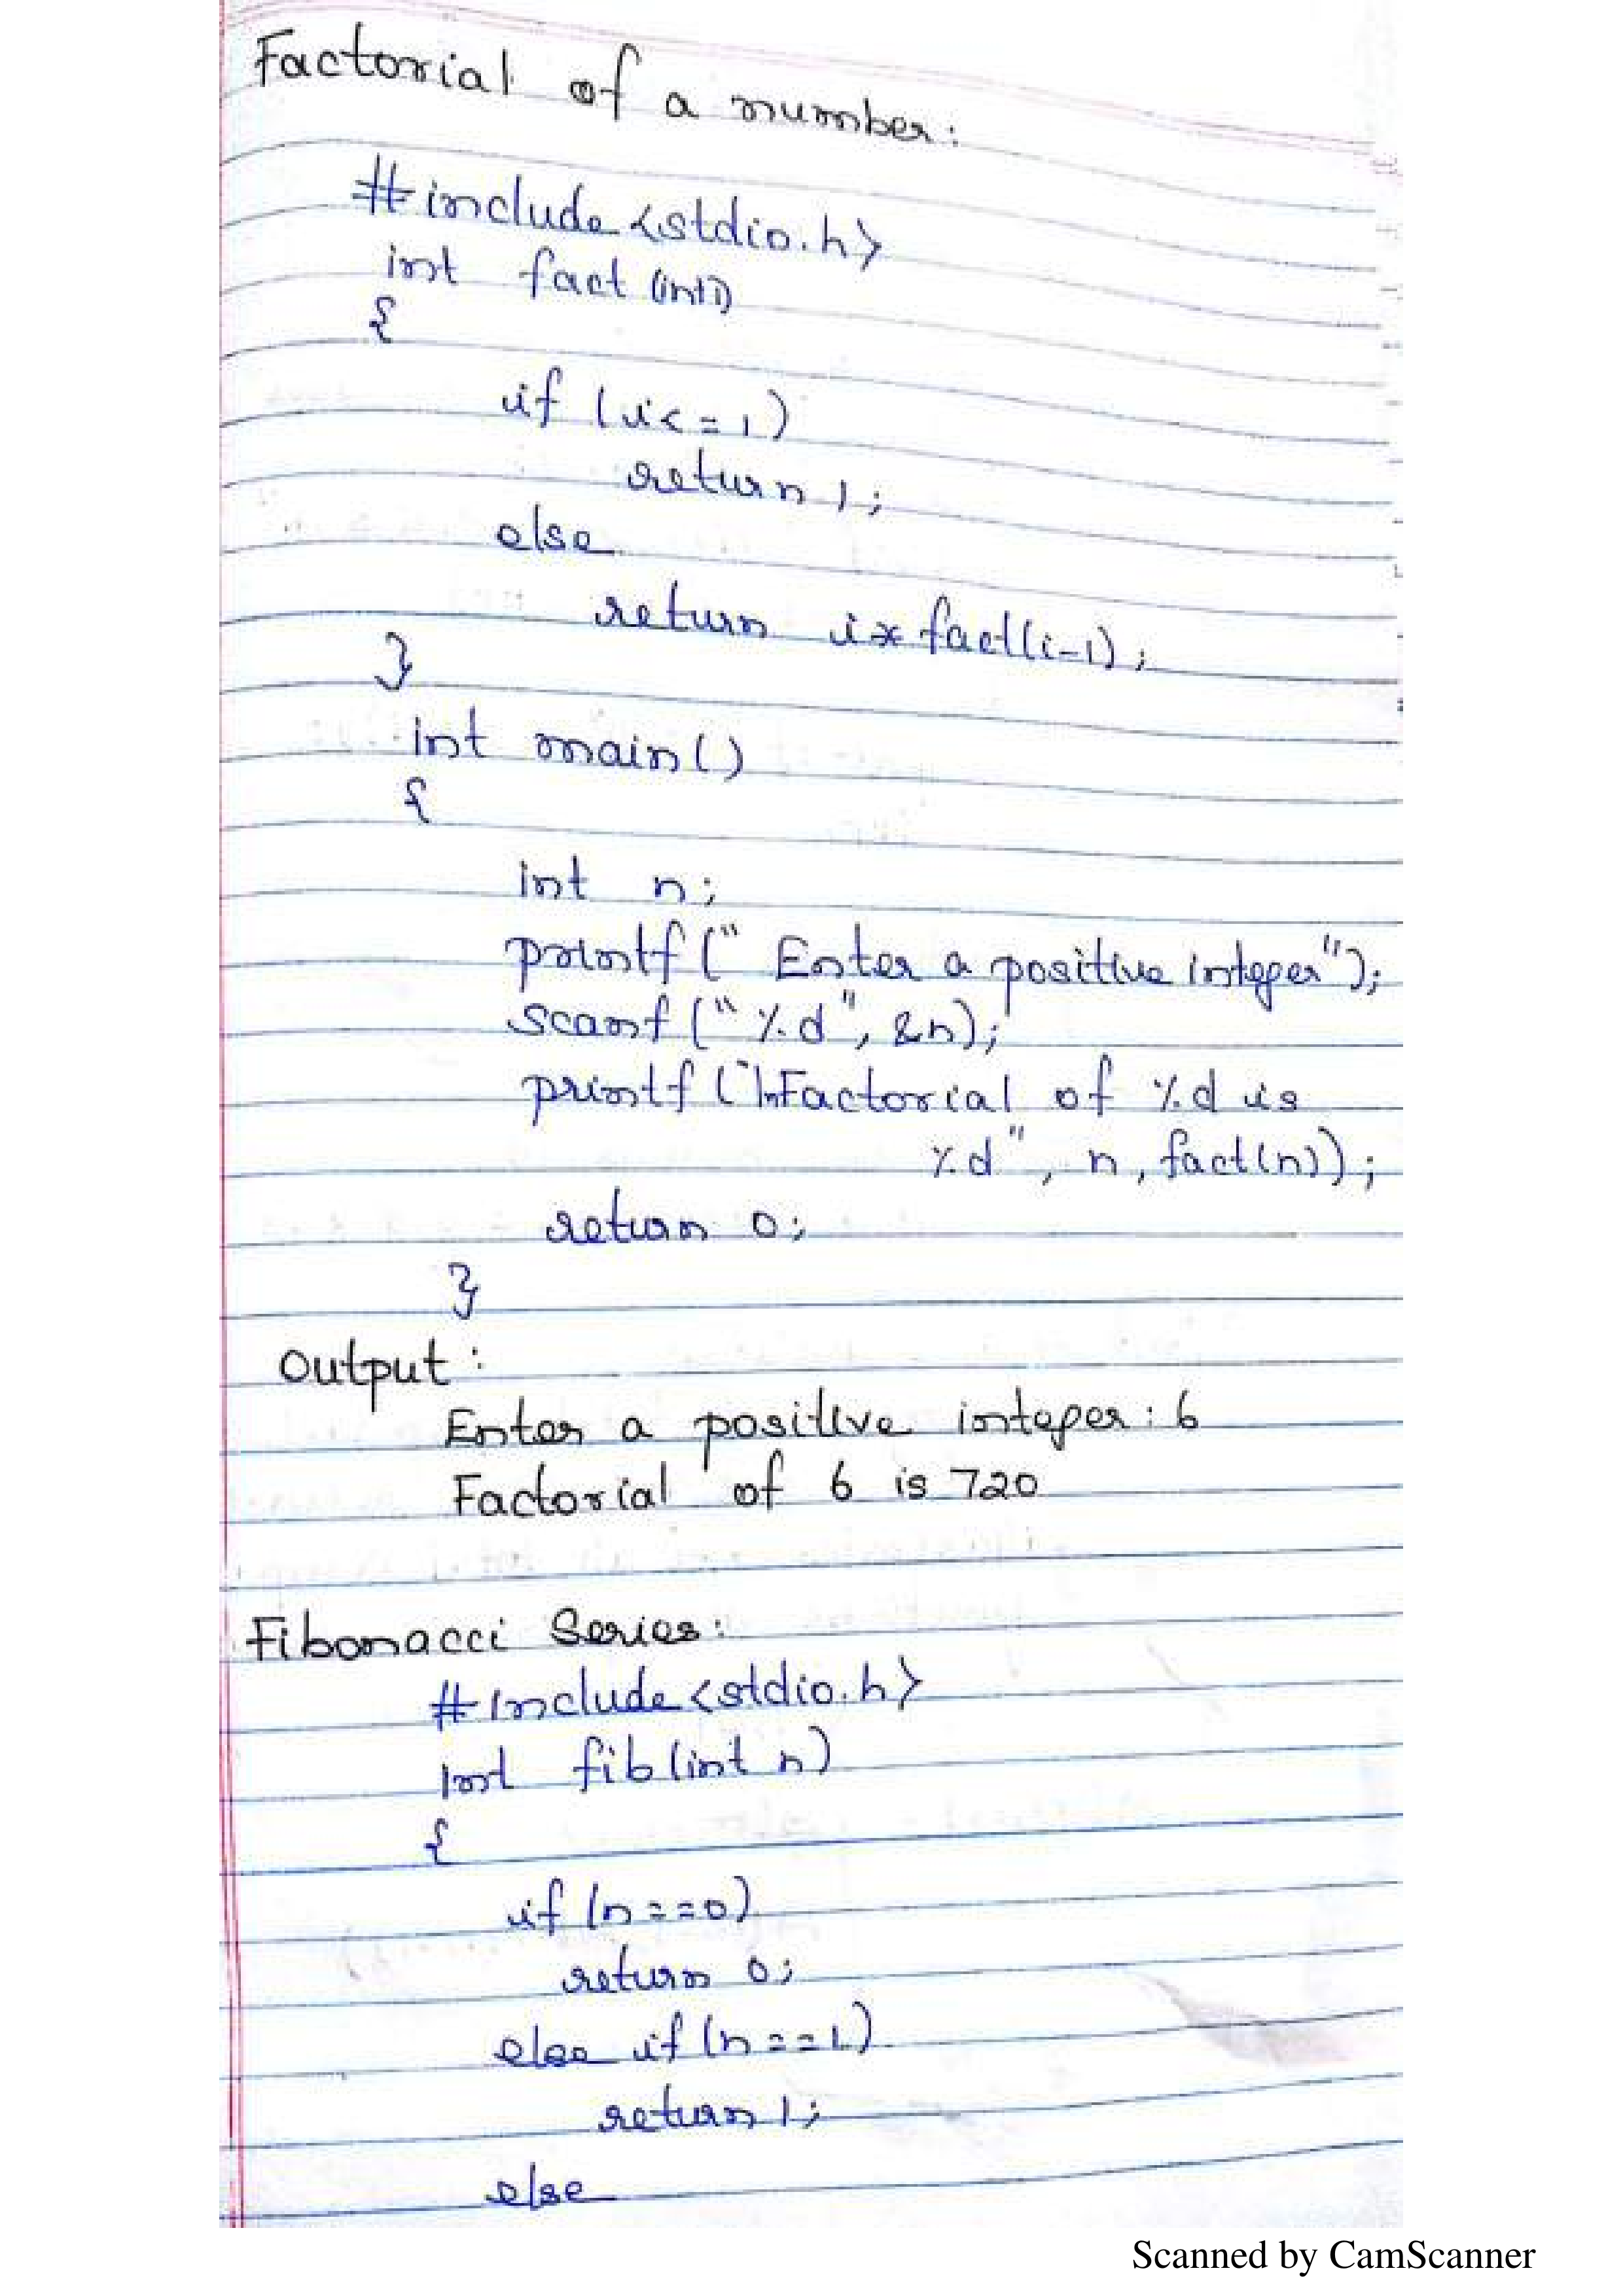 Factorial of a number:
#include<stdio.h>
int fact (int i)
{
if (i<=1)
return 1;
else
return i*fact(i-1);
}
int main()
{
int n;
printf(" Enter a positive integer");
scanf("%d", &n);
printf("\nFactorial of %d is
%d", n, fact(n));
return 0;
}
Output:
Enter a positive integer: 6
Factorial of 6 is 720
Fibonacci Series:
#include<stdio.h>
int fib(int n)
{
if (n==0)
return 0;
else if (n==1)
return 1;
else
Scanned by CamScanner